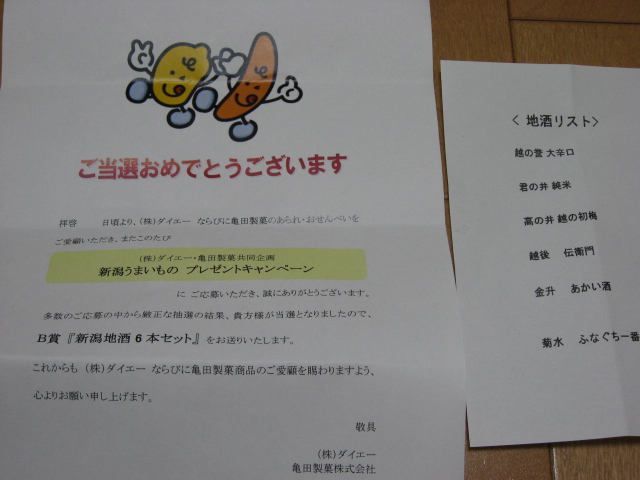 ご当選おめでとうございます
拝啓 日頃より、(株)ダイエー ならびに亀田製菓のあられ・おせんべいを
ご愛顧いただき、またこのたび
(株)ダイエー・亀田製菓共同企画
新潟うまいもの プレゼントキャンペーン
に ご応募いただき、誠にありがとうございます。
多数のご応募の中から厳正な抽選の結果、貴方様が当選となりましたので、
B賞『新潟地酒6本セット』をお送りいたします。
これからも (株)ダイエー ならびに亀田製菓商品のご愛顧を賜わりますよう、
心よりお願い申し上げます。
敬具
(株)ダイエー
亀田製菓株式会社
<地酒リスト>
越の誉 大辛口
君の井 純米
高の井 越の初梅
越後 伝衛門
金升 あかい酒
菊水 ふなぐち一番